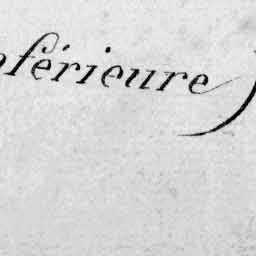 nférieure)